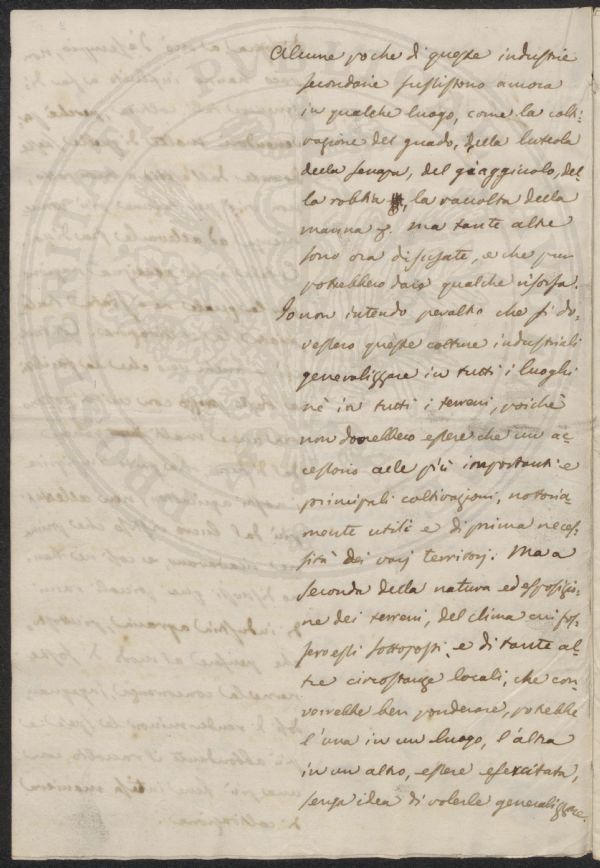 Alcune poche di queste industrie
secondarie sussistono ancora
in qualche luogo, come la colti-
vazione del guado, della luteola
della senapa, del giaggiuolo, del-
la robbia, la raccolta della
manna &. Ma tante altre
sono ora disusate, e che pur
potrebbero dare qualche risorsa.
Io non intendo peraltro che si do-
vessero queste colture industriali
generalizzare in tutti i luoghi
nè in tutti i terreni, poichè
non dovrebbero essere che un ac-
cessorio alle più importanti e
principali coltivazioni, notoria-
mente utili e di prima neces-
sità dei varj territorj. Ma a
seconda della natura ed esposizio-
ne dei terreni, del clima cui fos-
sero essi sottoposti, e di tante al-
tre circostanze locali, che con-
verrebbe ben ponderare, potrebbe
l'una in un luogo, l'altra
in un altro, essere esercitata,
senza idea di volerle generalizzare.